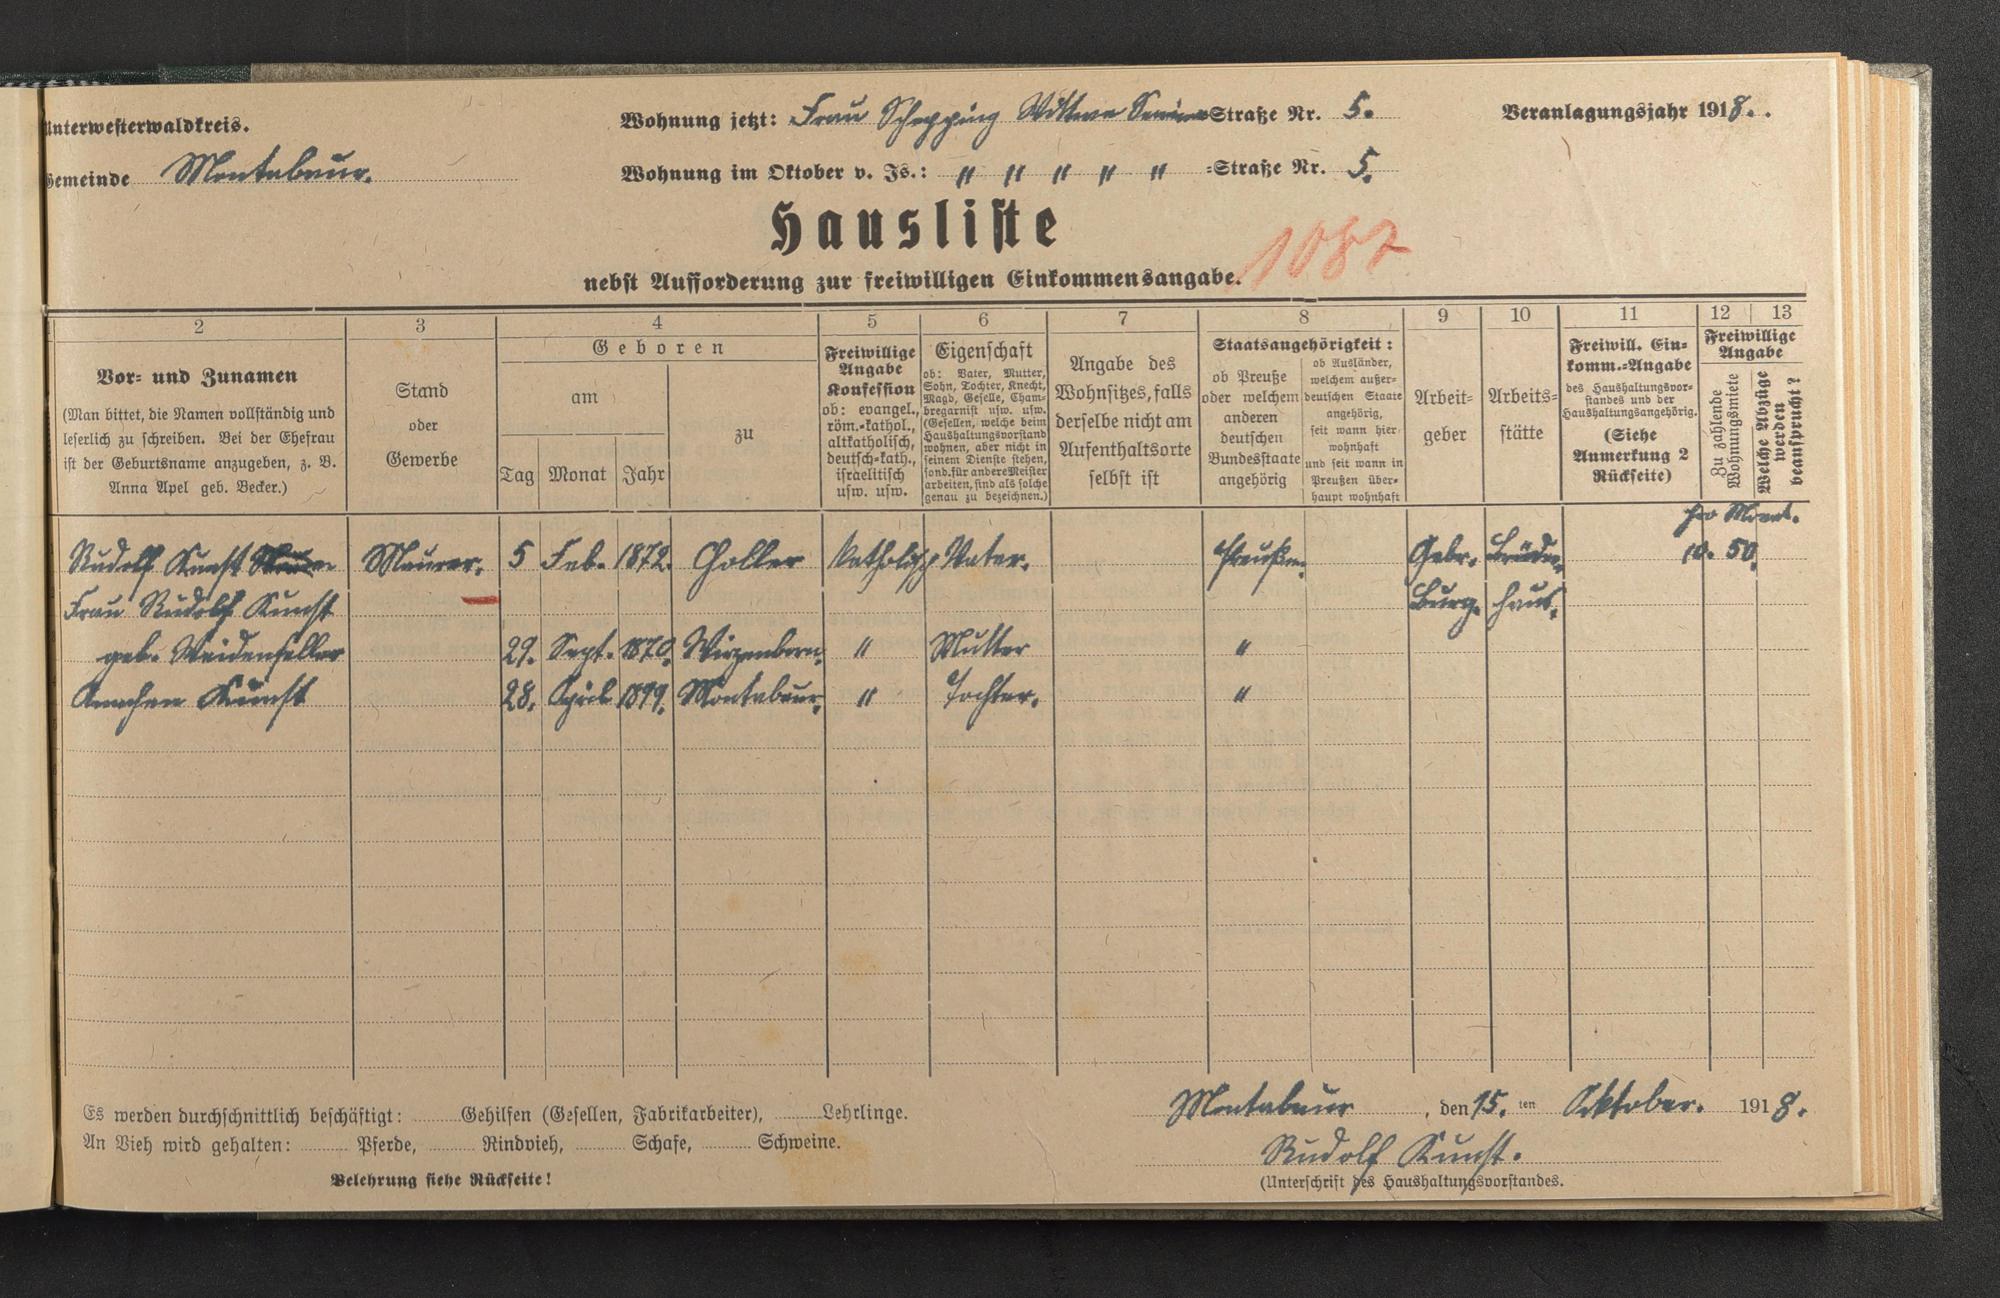 Unterwesterwaldkreis.
Gemeinde Montabaur.
Wohnung jetzt: Frau Schepping Wittwe Straße Nr. 5.
Wohnung im Oktober v. Js.: " " " " " =Straße Nr. 5.
Veranlagungsjahr 1918.
Hausliste
1087
nebst Aufforderung zur freiwilligen Einkommensangabe.
2
Vor- und Zunamen
(Man bittet, die Namen vollständig und
leserlich zu schreiben. Bei der Ehefrau
ist der Geburtsname anzugeben, z. B.
Anna Apel geb. Becker.)
3
Stand
oder
Gewerbe
4
Geboren
am
Tag Monat Jahr
zu
5
Freiwillige
Angabe
Konfession
ob: evangel.,
röm.-kathol.,
altkatholisch,
deutsch-kath.,
israelitisch
usw. usw.
6
Eigenschaft
ob: Vater, Mutter,
Sohn, Tochter, Knecht,
Magd, Geselle, Cham-
bregarnist usw. usw.
(Gesellen, welche beim
Haushaltungsvorstand
wohnen, aber nicht in
seinem Dienste stehen,
sond. für andere Meister
arbeiten, sind als solche
genau zu bezeichnen.)
7
Angabe des
Wohnsitzes, falls
derselbe nicht am
Aufenthaltsorte
selbst ist
8
Staatsangehörigkeit:
ob Preuße
oder welchem
anderen
deutschen
Bundesstaate
angehörig
ob Ausländer,
welchem außer-
deutschen Staate
angehörig,
seit wann hier
wohnhaft
und seit wann in
Preußen über-
haupt wohnhaft
9
Arbeit-
geber
10
Arbeits-
stätte
11
Freiwill. Ein-
komm.-Angabe
des Haushaltungsvor-
standes und der
Haushaltungsangehörig.
(Siehe
Anmerkung 2
Rückseite)
12 13
Freiwillige
Angabe
Zu zahlende
Wohnungsmiete
Welche Abzüge
werden
beansprucht?
pro Monat.
Rudolf Kunst Maurer. 5 Feb. 1872. Goller katholisch Vater. Preußen. Gebr. Brüder 10. 50.
Frau Rudolf Kunst Burg. haus.
geb. Weidenfeller 29. Sept. 1870. Wirzenborn. " Mutter "
Annchen Kunst 28. April 1899. Montabaur. " Tochter. "
Es werden durchschnittlich beschäftigt: Gehilfen (Gesellen, Fabrikarbeiter), Lehrlinge.
An Vieh wird gehalten: Pferde, Rindvieh, Schafe, Schweine.
Belehrung siehe Rückseite!
Montabaur, den 15. ten Oktober. 1918.
Rudolf Kunst.
(Unterschrift des Haushaltungsvorstandes.